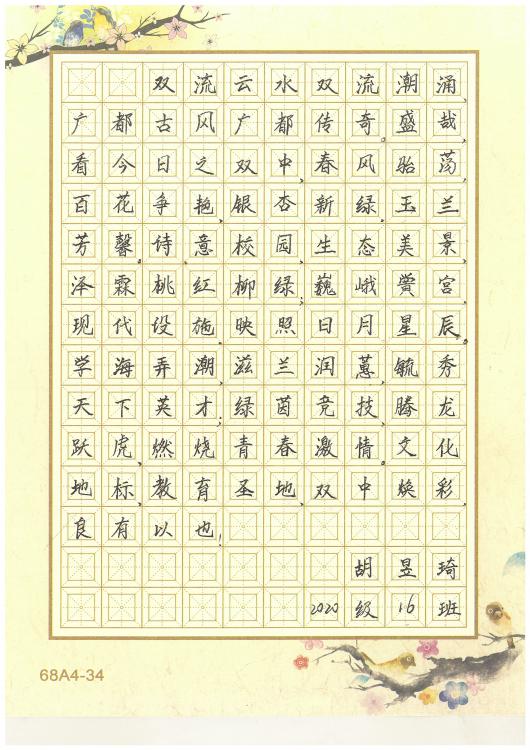 双流云水双流潮涌,
广都古风广都传奇。盛哉,
看今日之双中,春风骀荡,
百花争艳,银杏新绿,玉兰
芳馨。诗意校园,生态美景,
泽霖桃红柳绿;巍峨黉宫,
现代设施,映照日月星辰。
学海弄潮,滋兰润蕙,毓秀
天下英才;绿茵竞技,腾龙
跃虎,燃烧青春激情。文化
地标,教育圣地,双中焕彩
良有以也!
胡昱琦
2020级16班
68A4-34